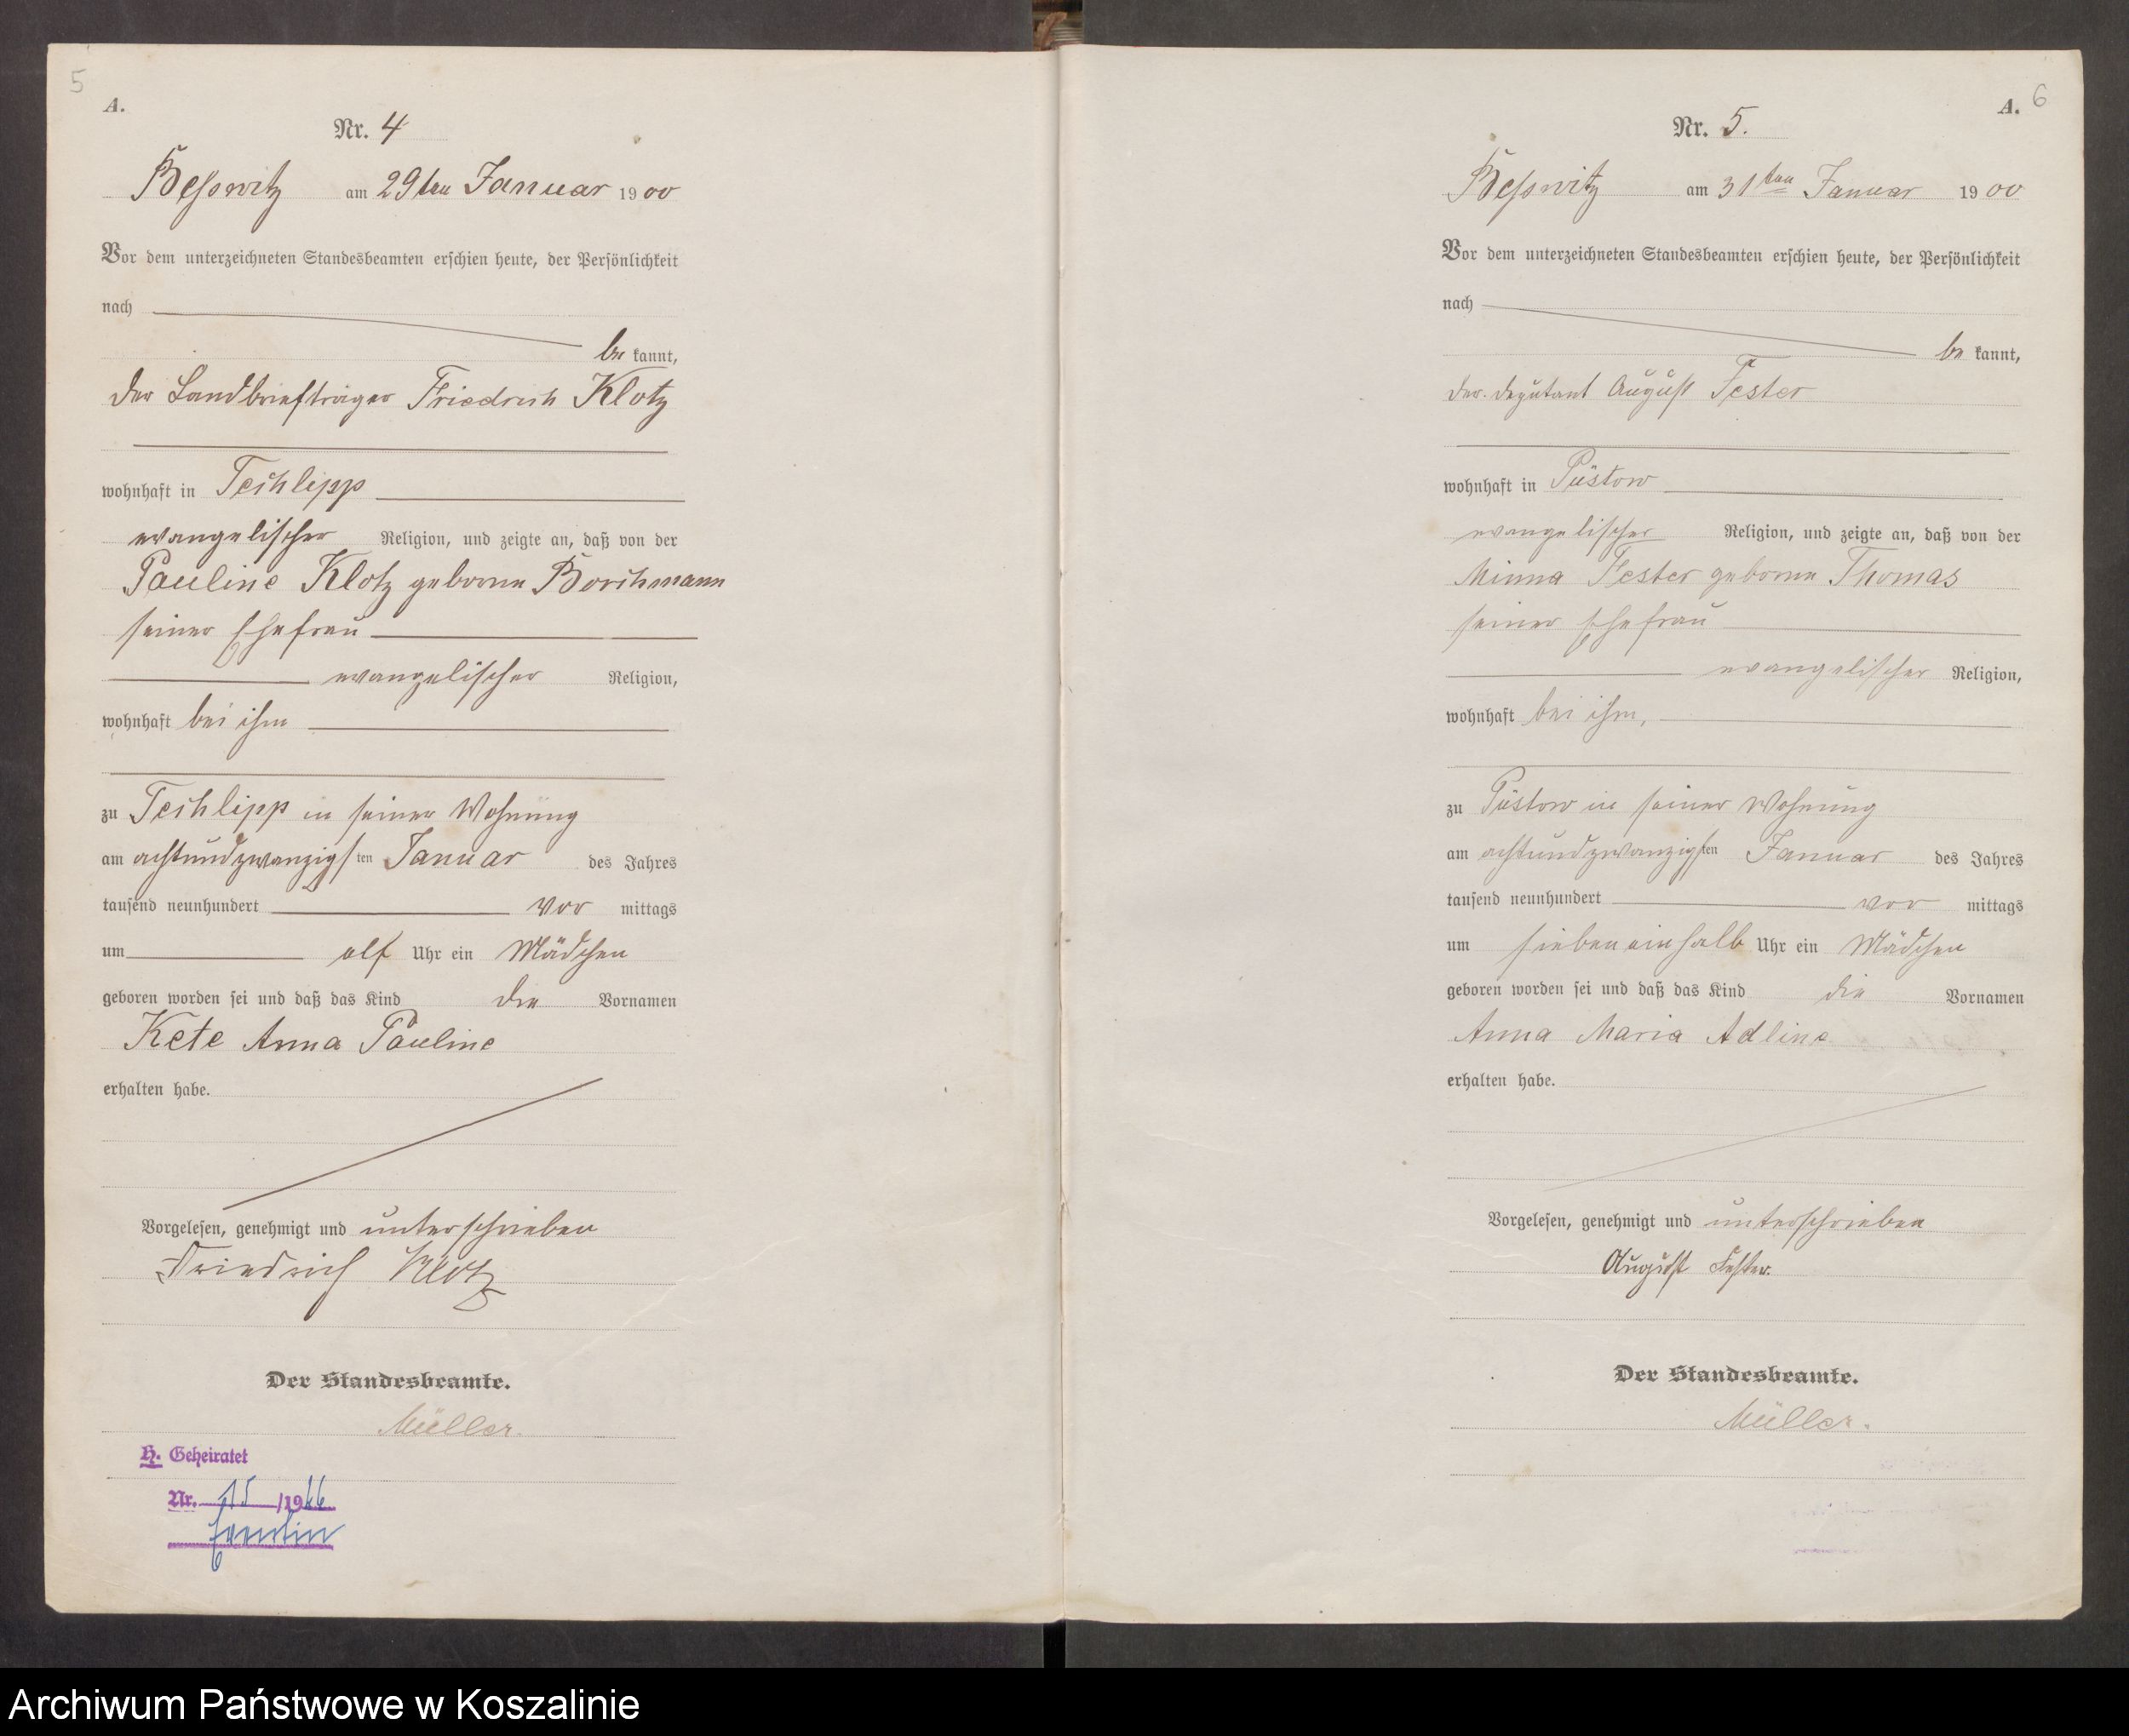 5
A.
Nr. 4
Besswitz am 29ten Januar 1900
Vor dem unterzeichneten Standesbeamten erschien heute, der Persönlichkeit
nach
be kannt,
der Landbriefträger Friedrich Klotz
wohnhaft in Techlipp
evangelischer Religion, und zeigte an, daß von der
Pauline Klotz geborene Borchmann
seiner Ehefrau
evangelischer Religion,
wohnhaft bei ihm
zu Techlipp in seiner Wohnung
am achtundzwanzigsten Januar des Jahres
tausend neunhundert vor mittags
um elf Uhr ein Mädchen
geboren worden sei und daß das Kind die Vornamen
Kete Anna Pauline
erhalten habe.
Vorgelesen, genehmigt und unterschrieben
Friedrich Klotz
Der Standesbeamte.
Müller.
H. Geheiratet
Nr. 15 /19
A. 6
Nr. 5.
Besswitz am 31ten Januar 1900
Vor dem unterzeichneten Standesbeamten erschien heute, der Persönlichkeit
nach
be kannt,
der Deputant August Fester
wohnhaft in Püstow
evangelischer Religion, und zeigte an, daß von der
Minna Fester geborene Thomas
seiner Ehefrau
evangelischer Religion,
wohnhaft bei ihm,
zu Püstow in seiner Wohnung
am achtundzwanzigsten Januar des Jahres
tausend neunhundert vor mittags
um siebeneinhalb Uhr ein Mädchen
geboren worden sei und daß das Kind die Vornamen
Anna Maria Adline
erhalten habe.
Vorgelesen, genehmigt und unterschrieben
August Fester.
Der Standesbeamte.
Müller.
Archiwum Państwowe w Koszalinie